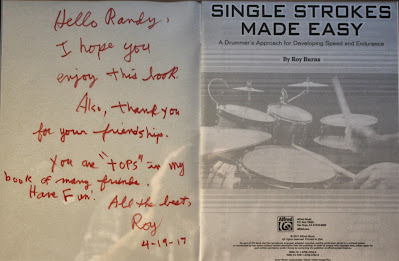 Hello Randy,
I hope you
enjoy this book
Also, thank you
for your friendship.
You are "TOPS" in my
book of many friends.
Have Fun!
All the best,
Roy
4-19-17
SINGLE STROKES
MADE EASY
A Drummer's Approach for Developing Speed and Endurance
By Roy Burns
Alfred
alfred.com